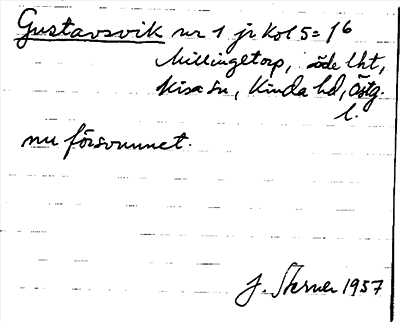 Gustavsvik nr 1 jr kol 5 = 16
Millingetorp, öde lht,
Kisa sn, Kinda hd, Östg.
l.
nu försvunnet.
J. Sterner 1957